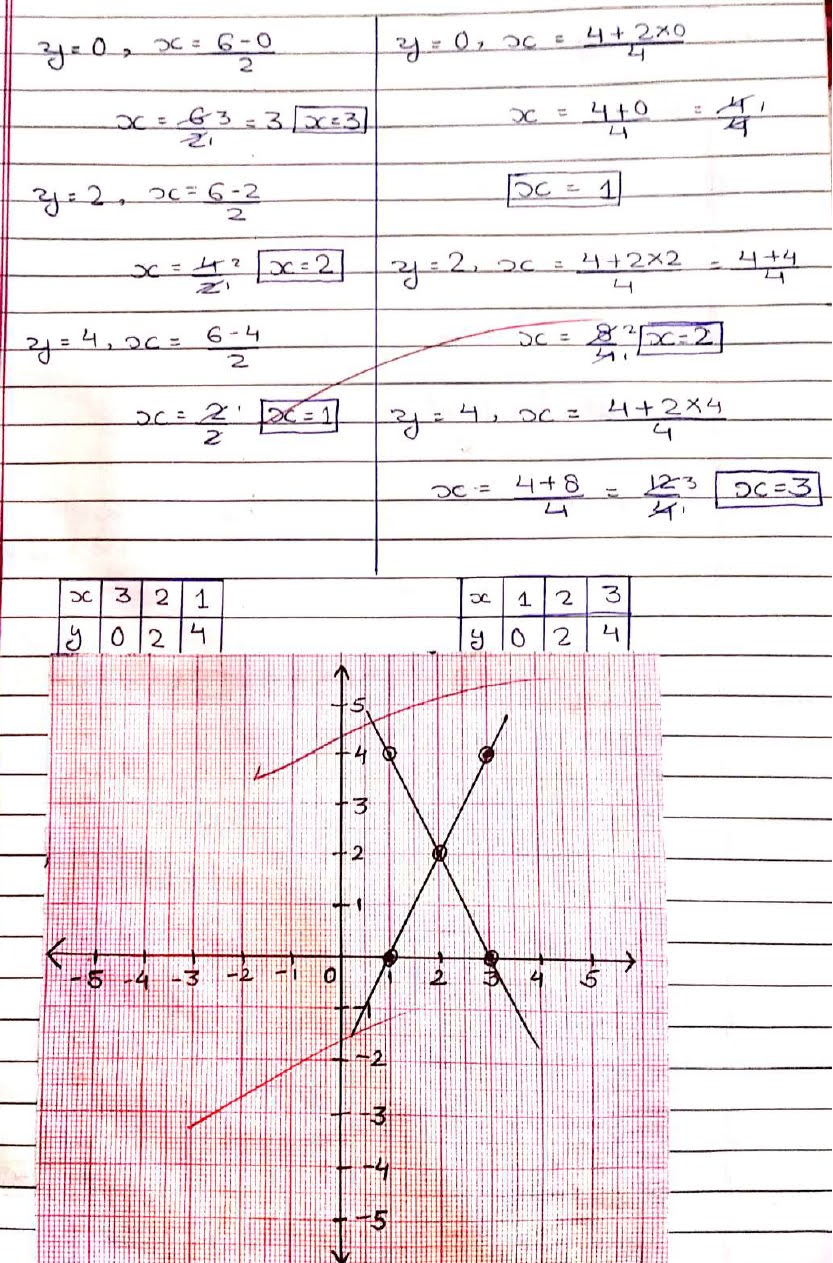 y=0, x = 6-0/2
x = 6/2 3/1 = 3 x=3
y=2, x = 6-2/2
x = 4/2 2/1 x=2
y=4, x = 6-4/2
x = 2/2 1 x=1
y=0, x = 4+2×0/4
x = 4+0/4 = 4/4 1
x = 1
y=2, x = 4+2×2/4 = 4+4/4
x = 8/4 2/1 x=2
y=4, x = 4+2×4/4
x = 4+8/4 = 12/4 3/1 x=3
x 3 2 1
y 0 2 4
x 1 2 3
y 0 2 4
5
4
3
2
1
-5 -4 -3 -2 -1 0 1 2 3 4 5
-1
-2
-3
-4
-5